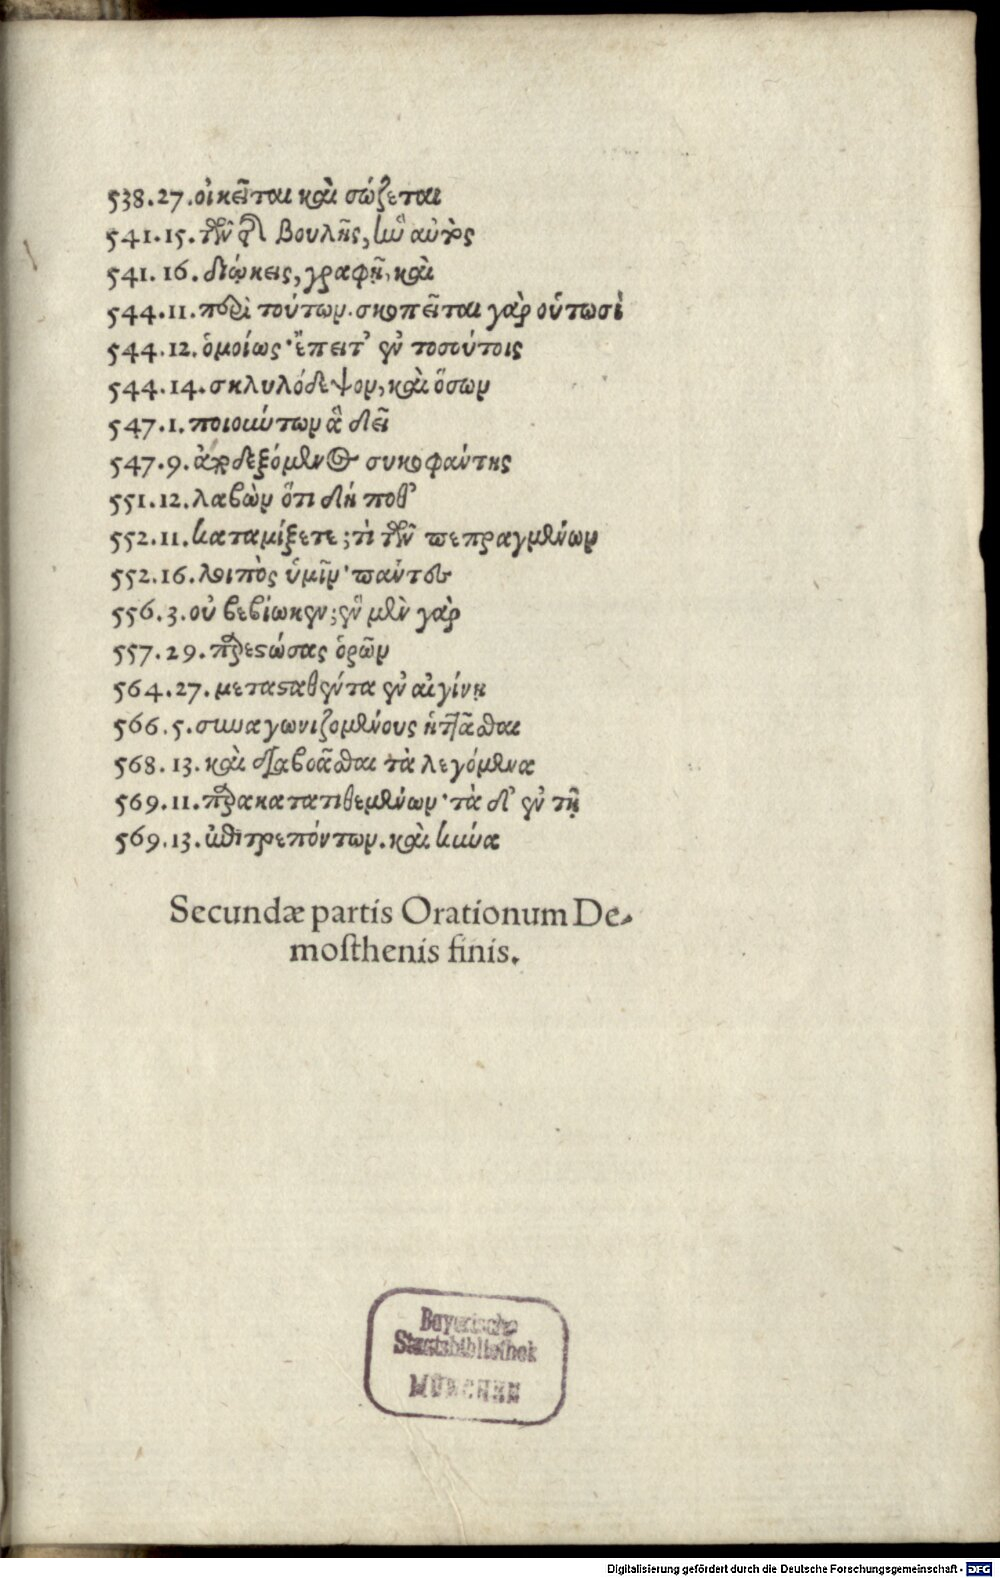 538.27.οἰκεῖται καὶ σώζεται
541.15.τῶν ἐκ βουλῆς, ἣν αὐτὸς
541.16. διώκεις, γραφῇ, καὶ
544.11. περὶ τούτων. σκοπεῖται γὰρ οὑτωσὶ
544.12. ὁμοίως· ἔπειτ’ ἐν τοσούτοις
544.14. σκλυλόδεψον, καὶ ὅσων
547.1. ποιούντων ἃ δεῖ
547.9. παραδεξόμενος συκοφάντης
551.12. λαβὼν ὅτι δή ποθ’
552.11. καταμίξετε; τὶ τῶν πεπραγμένων
552.16. λοιπὸς ὑμῖν· πάντες
556.3. οὐ βεβίωκεν; ἓν μὲν γὰρ
557.29. παρεστώσας ὁρῶν
564.27. μετασταθέντα ἐν αἰγίνῃ
566.5. συναγωνιζομένους ἡττᾶσθαι
568.13. καὶ διαβοᾶσθαι τὰ λεγόμενα
569.11. παρακατατιθεμένων· τὰ δ’ ἐν τῇ
569.13. ἐπιτρεπόντων. καὶ κενὰ
Secundæ partis Orationum De-
mosthenis finis.
Bayerische
Staatsbibliothek
MÜNCHEN
Digitalisierung gefördert durch die Deutsche Forschungsgemeinschaft - DFG